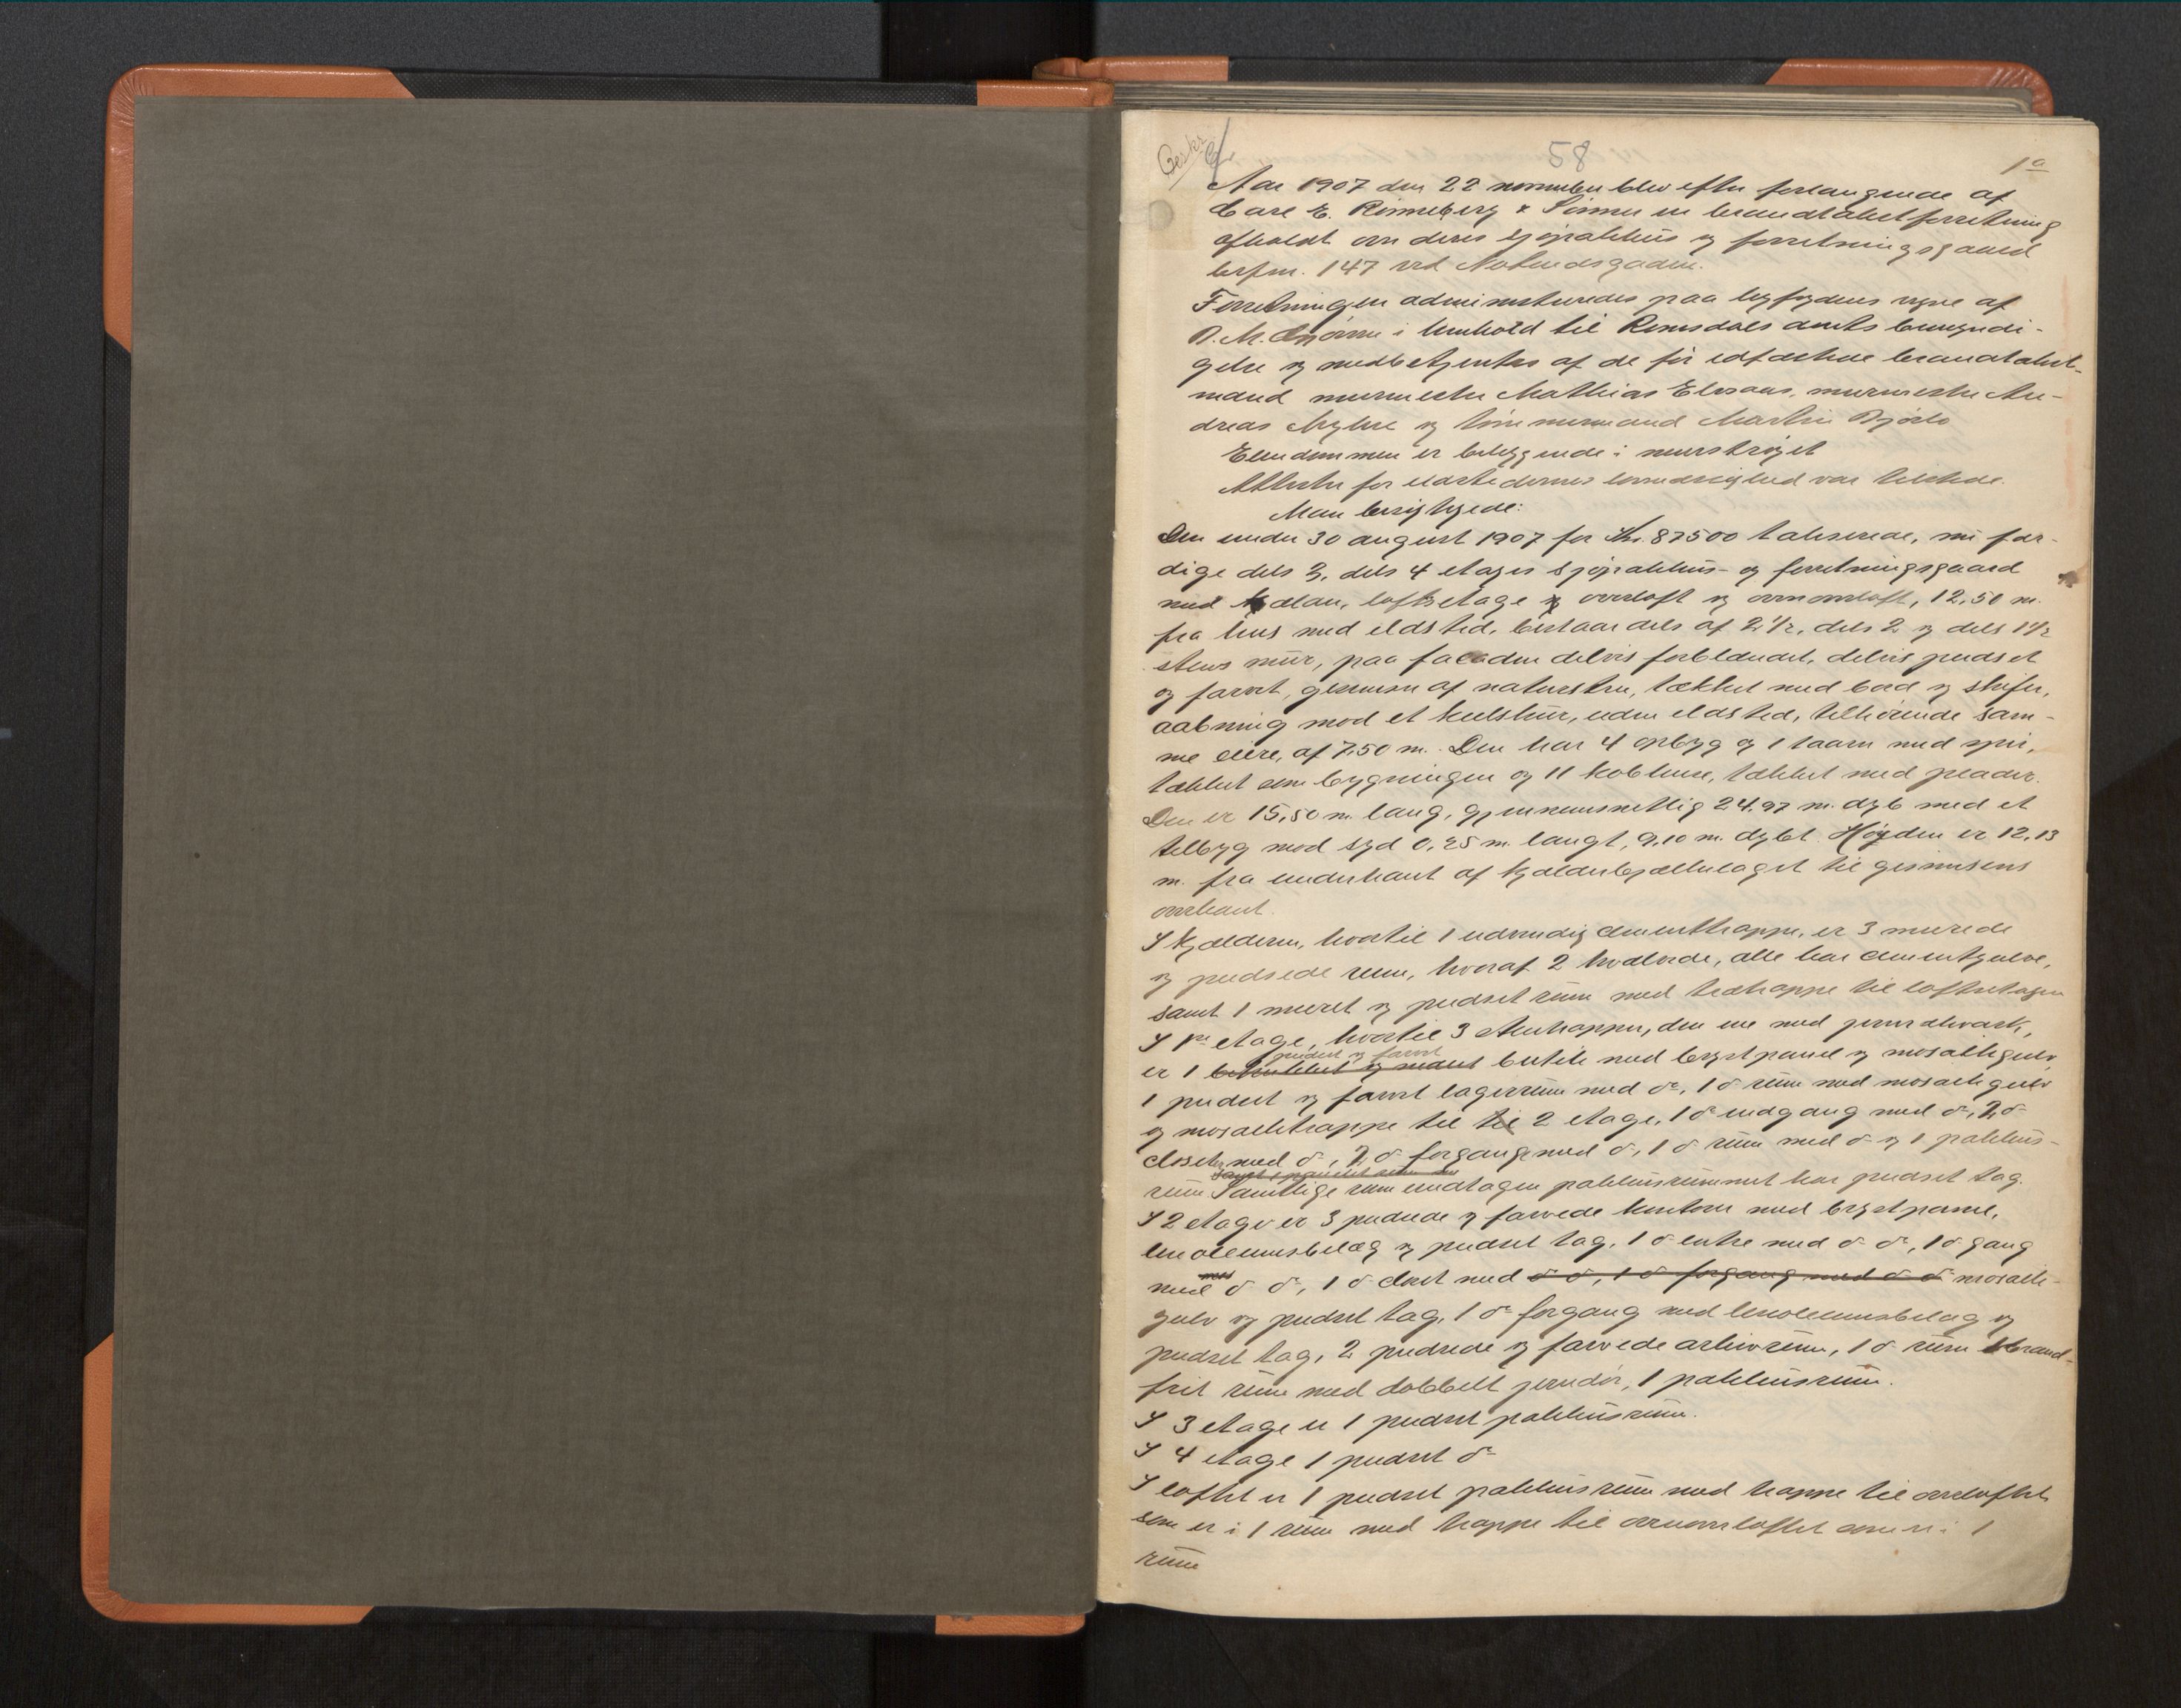 58
1a
Aar 1907 den 22 november blev efter forlangende af
Carl E. Rönneberg & Sönner en brandtakstforretning
afholdt over deres sjøpakhus og forretningsgaard
brfm. 147 ved Notenesgaden.
Forretningen administreredes paa byfogdens vegne af
i henhold til Romsdals amts bemyndi-
gelse og medbetjentes af de før edfæstede brandtakst-
mænd murmester Mathias Elvsaas, murmester An-
dreas Myhre og tömmermand Martin Bjørlo
Eiendommen er beliggende i murstrøget
Attester for ildstedernes lovmæssighed var tilstede.
Man besigtigede:
Den under 30 august 1907 for Kr. 87500 takserede, nu fær-
dige dels 3, dels 4 etages sjøpakhus- og forretningsgaard
med kjælder, loftsetage og overloft og overoverloft, 12,50 m.
fra hus med ildsted, bestaar dels af 2 1/2, dels 2 og dels 1 1/2
stens mur, paa facaden delvis forblændet, delvis pudset
og farvet, gesimsen af natursten, tækket med bord og skifer,
aabning mod et kulskur, uden ildsted, tilhørende sam-
me eiere, af 7,50 m. Den har 4 opbyg og 1 taarn med spir,
tækket som bygningen og 11 koblense, tækket med plader.
Den er 15,50 m. lang, gjennemsnitlig 24,97 m. dyb med et
tilbyg mod syd 0,25 m. langt, 9,10 m. dybt. Høyden er 12,13
m. fra underkant af kjælderbjælkelaget til gesimsens
overkant.
I kjælderen, hvortil 1 udvendig cementtrappe, er 3 murede
og pudsede rum, hvoraf 2 hvælvede, alle har cementgulve,
samt 1 muret og pudset rum med trætrappe til loftsetagen
I 1ste etage, hvortil 3 stentrapper, den ene med jernrækværk,
pudset og farvet
er 1 betrukket og malet butik med brystpanel og mosaikgulv,
1 pudset og farvet lagerrum med do, 1 do rum med mosaikgulv
og mosaiktrappe til til 2 etage, 1 do indgang med do, 2 do
closeter med do, 2 do forgange med do, 1 do rum med do og 1 pakhus-
samt 1 panelet rum
rum. Samtlige rum undtagen pakhusrummet har pudset tag.
I 2 etage er 3 pudsede og farvede kontorer med brystpanel,
linoleumsbelæg og pudset tag, 1 do entre med do do, 1 do gang
med do do, 1 do closet med do do, 1 do forgang med do do mosaik-
gulv og pudset tag, 1 do forgang med linoleumsbelæg og
pudset tag, 2 pudsede og farvede arkivrum, 1 do rum brand-
frit rum med dobbelt jerndør, 1 pakhusrum.
I 3 etage er 1 pudset pakhusrum.
I 4 etage 1 pudset do
I loftet er 1 pudset pakhusrum med trappe til overloftet
som er i 1 rum med trappe til overoverloftet som er i 1
rum